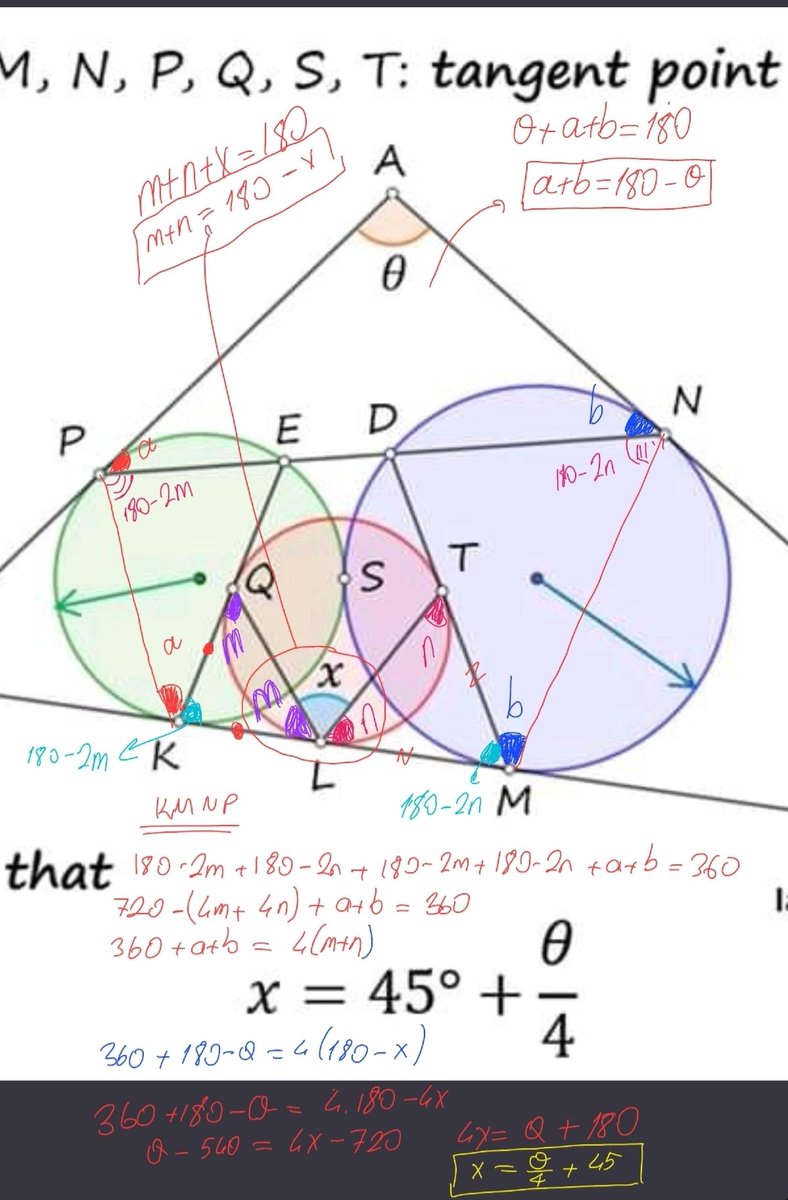 M, N, P, Q, S, T: tangent point
m+n+x=180
m+n=180-x
θ+a+b=180
a+b=180-θ
A
θ
P
a
E
D
b
N
180-2m
180-2n
Q
S
T
a
m
n
x
z
m
n
b
N
180-2m
K
L
180-2n
M
KMNP
that
180-2m+180-2n+180-2m+180-2n+a+b=360
720-(4m+4n)+a+b=360
360+a+b=4(m+n)
x = 45° + θ/4
360+180-θ=4(180-x)
360+180-θ=4.180-4x
θ-540=4x-720
4x=θ+180
x=θ/4+45